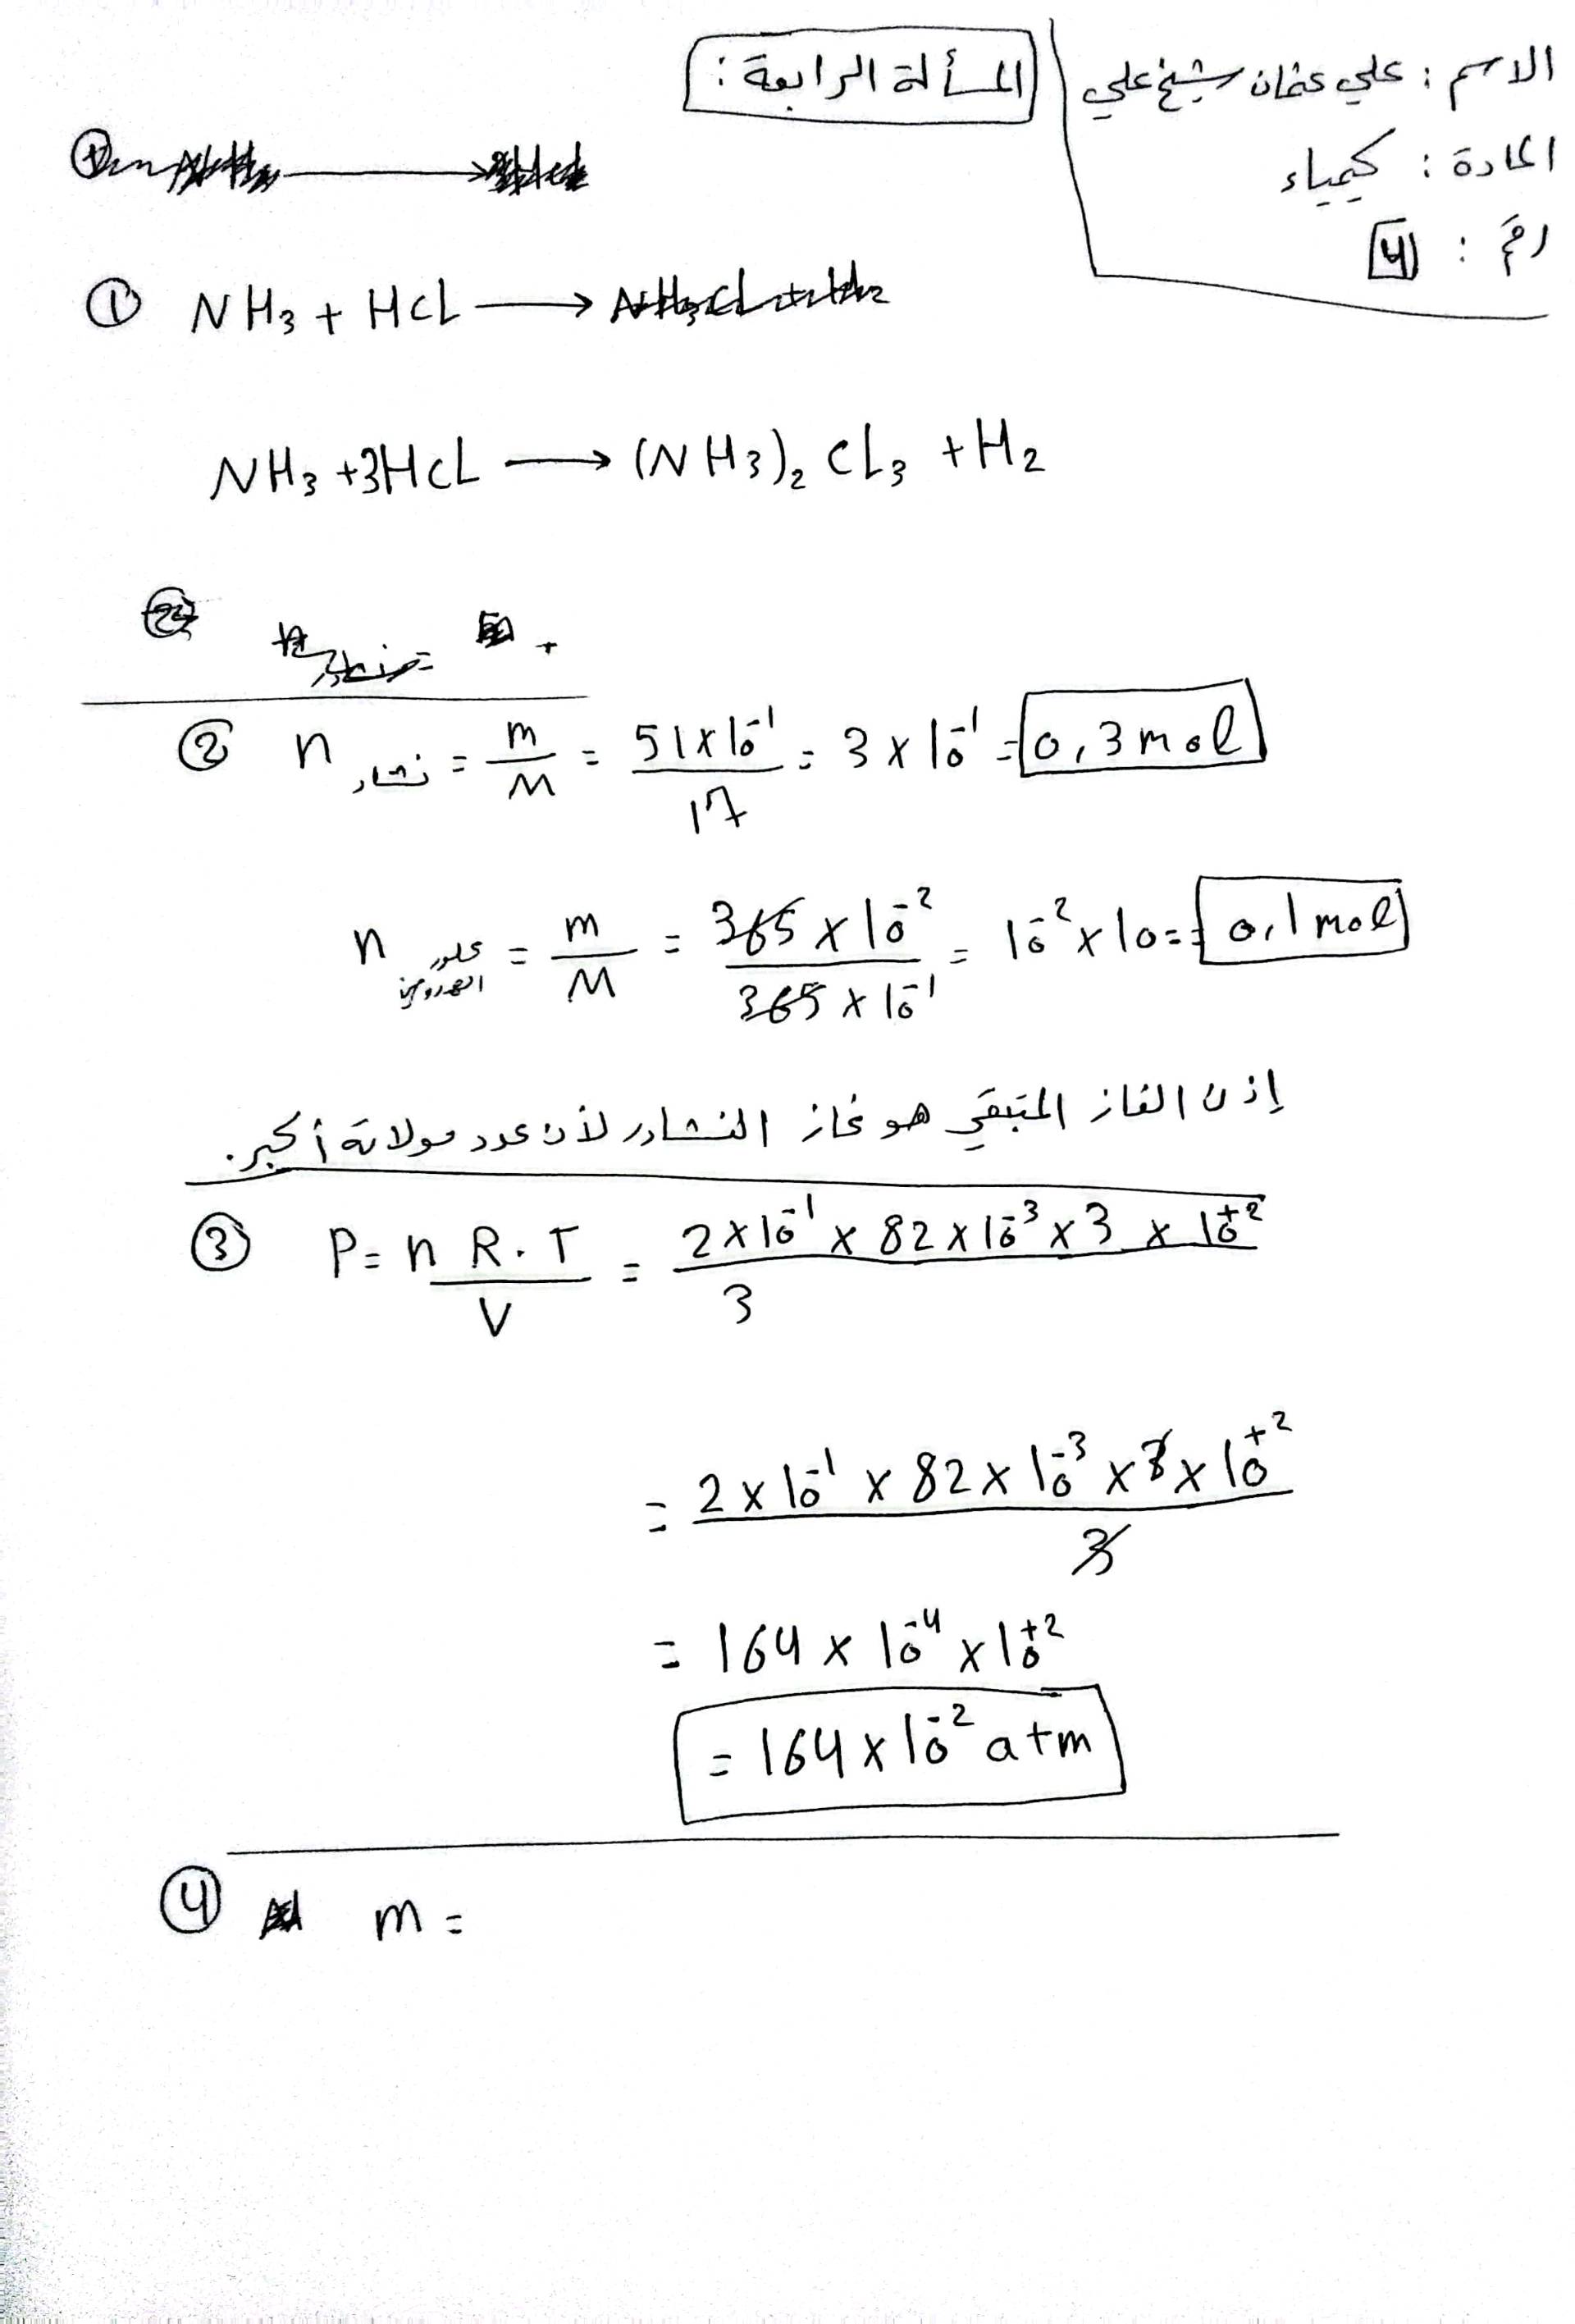 الاسم : علي عثمان شيخ علي
المادة : كيمياء
رقم : 4
المسألة الرابعة :
① NH₃ + HCl ⟶
NH₃ + 3HCl ⟶ (NH₃)₂ Cl₃ + H₂
② n نشادر = m/M = 51 × 10⁻¹ / 17 = 3 × 10⁻¹ = 0,3 mol
n كلور الهدروجين = m/M = 365 × 10⁻² / 365 × 10⁻¹ = 10⁻² × 10 = 0,1 mol
إذن الغاز المتبقي هو غاز النشادر لأن عدد مولاته أكبر.
③ P = n R . T / V = 2 × 10⁻¹ × 82 × 10⁻³ × 3 × 10⁺² / 3
= 2 × 10⁻¹ × 82 × 10⁻³ × 3 × 10⁺² / 3
= 164 × 10⁻⁴ × 10⁺²
= 164 × 10⁻² atm
④ m =